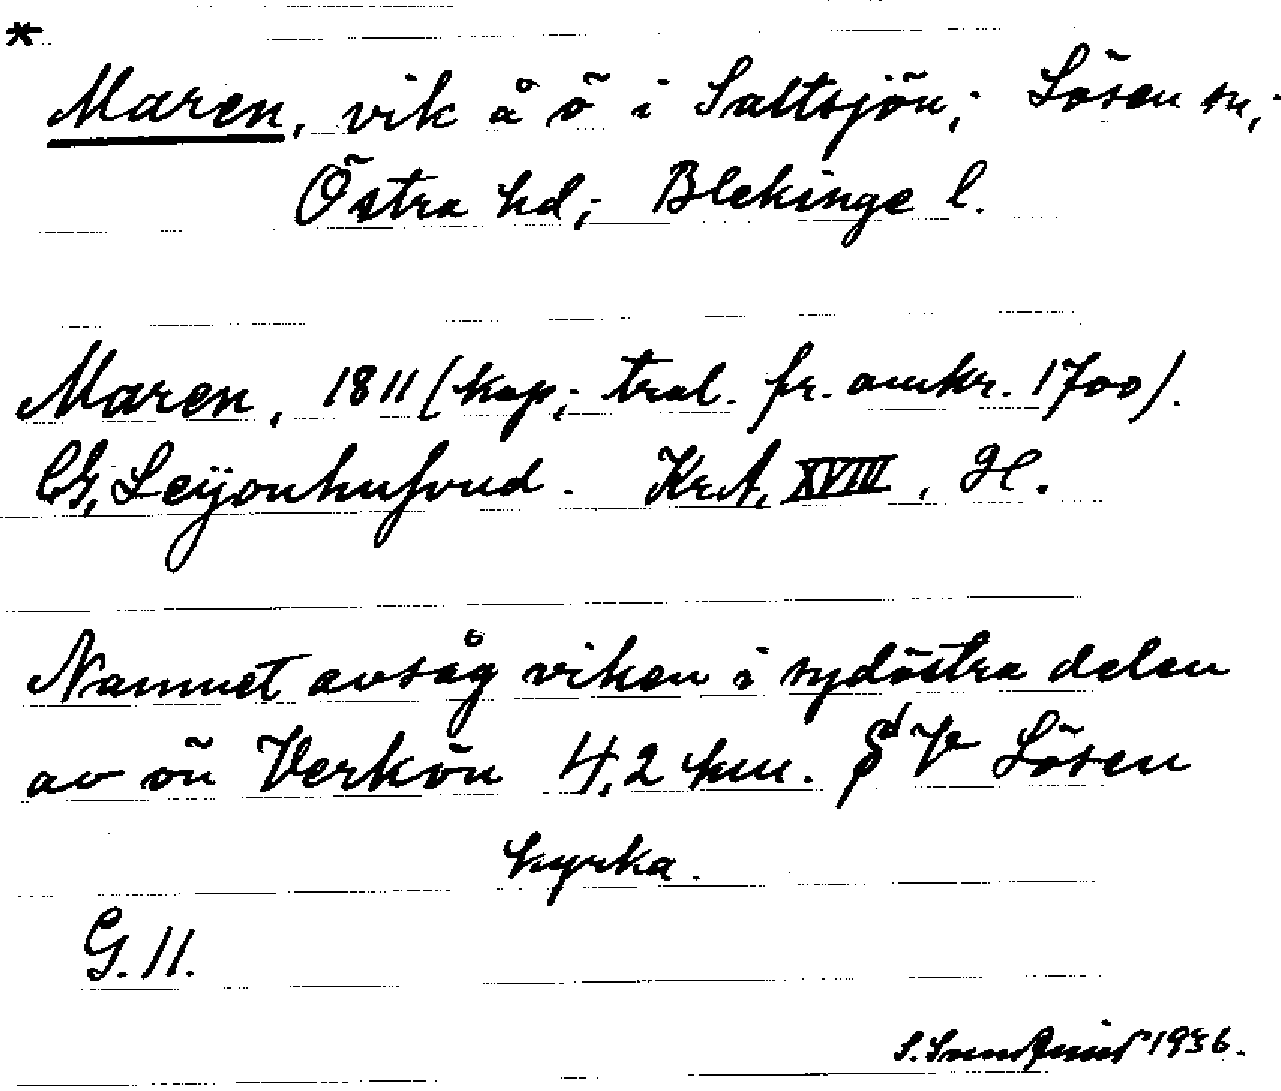 *
Maren, vik å ö i Saltsjön; Lösen sn;
Östra hd; Blekinge l.
Maren, 1811 (kop; trol. fr. omkr. 1700).
CG, Leijonhufvud. KrA, XVIII, H.
Namnet avsåg viken i sydöstra delen
av ön Verkön 4,2 km. V Lösen
kyrka.
G. 11.
S. 1936.